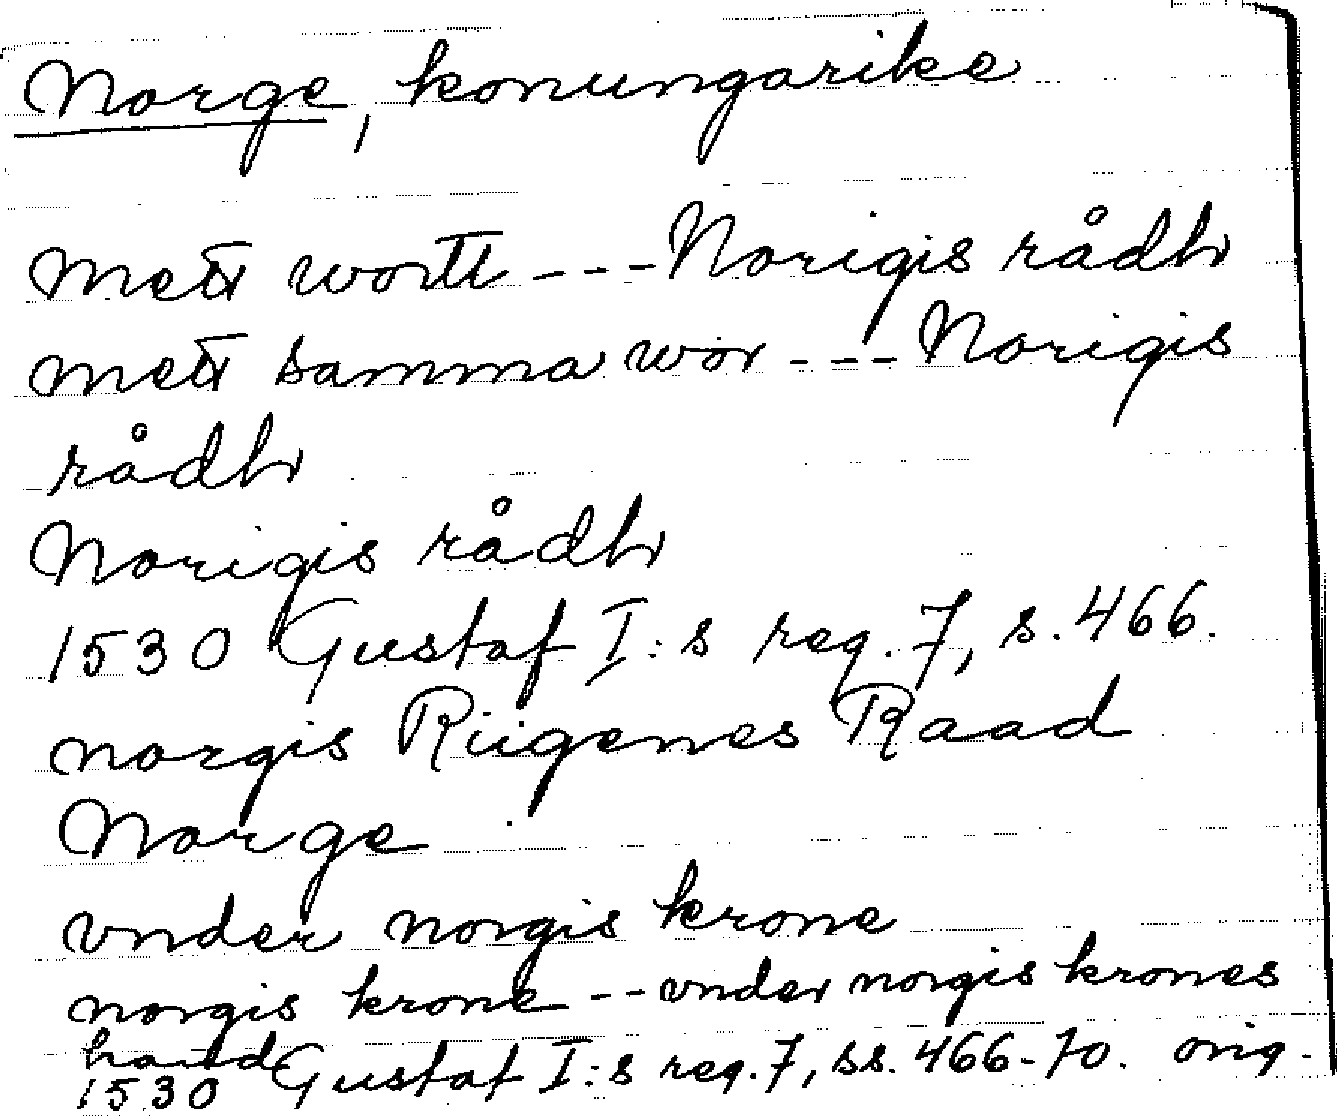 Norge, konungarike
mett wortt - - - Norigis rådh
mett samma wor - - - Norigis
rådh
Norigis rådh
1530 Gustaf I:s reg. 7, s. 466.
norgis Riigenes Raad
Norge
vnder norgis krone
norgis krone - - vnder norgis krones
hand
1530 Gustaf I:s reg. 7, ss. 466-70. orig.